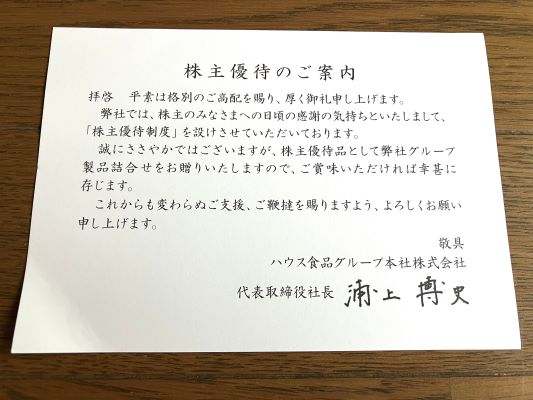 株主優待のご案内
拝啓　平素は格別のご高配を賜り、厚く御礼申し上げます。
弊社では、株主のみなさまへの日頃の感謝の気持ちといたしまして、
「株主優待制度」を設けさせていただいております。
誠にささやかではございますが、株主優待品として弊社グループ
製品詰合せをお贈りいたしますので、ご賞味いただければ幸甚に
存じます。
これからも変わらぬご支援、ご鞭撻を賜りますよう、よろしくお願い
申し上げます。
敬具
ハウス食品グループ本社株式会社
代表取締役社長 浦上 博史